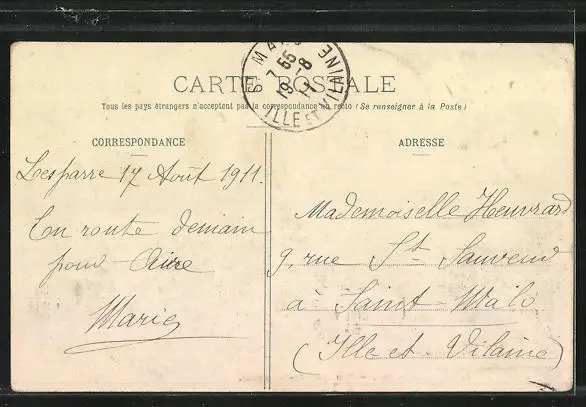 CARTE POSTALE
Tous les pays étrangers n'acceptent pas la correspondance au recto (Se renseigner à la Poste)
ST MALO
7 55
19-8
11
ILLE ET VILAINE
CORRESPONDANCE
Lesparre 17 Août 1911.
En route demain
pour Aire
Marie
ADRESSE
Mademoiselle Heuvrard
9, rue St Sauveur
à Saint-Malo
(Ille et-Vilaine)